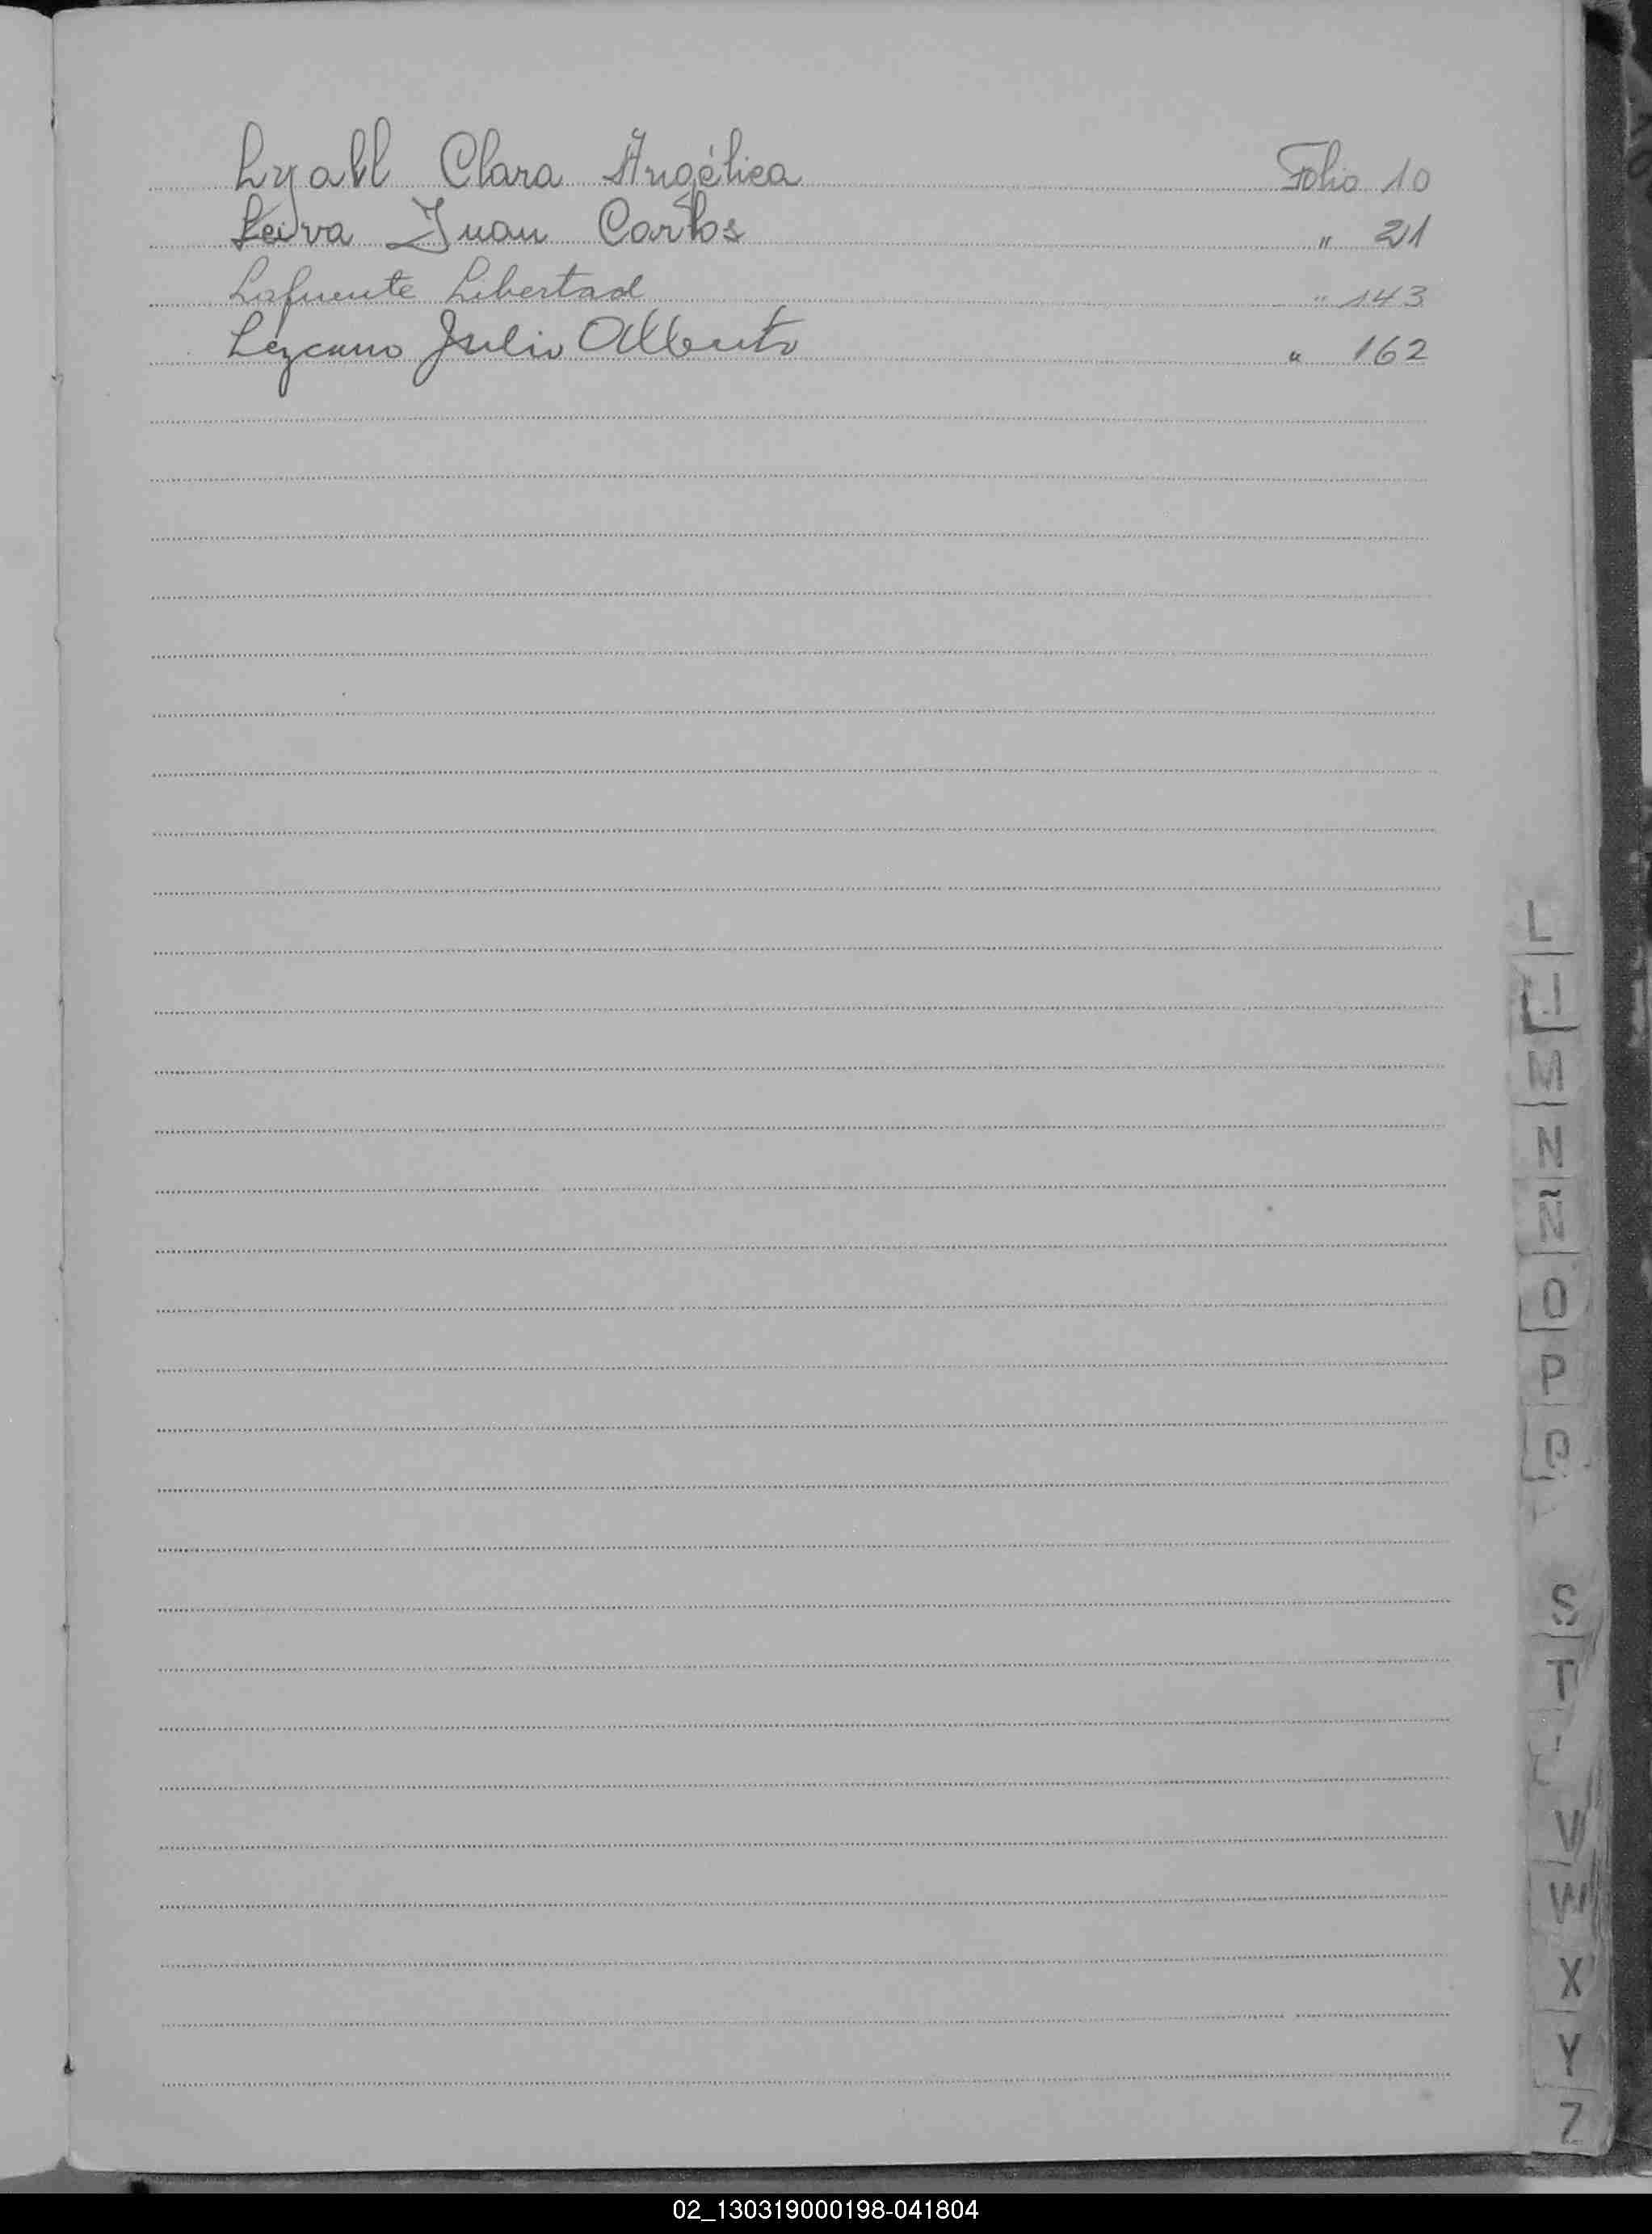 Lyall Clara Angélica Folio 10
Leiva Juan Carlos " 21
Lafuente Libertad " 143
Lezcano Julio Alberto " 162
L
M
N
Ñ
O
P
Q
S
T
V
W
X
Y
Z
02_130319000198-041804